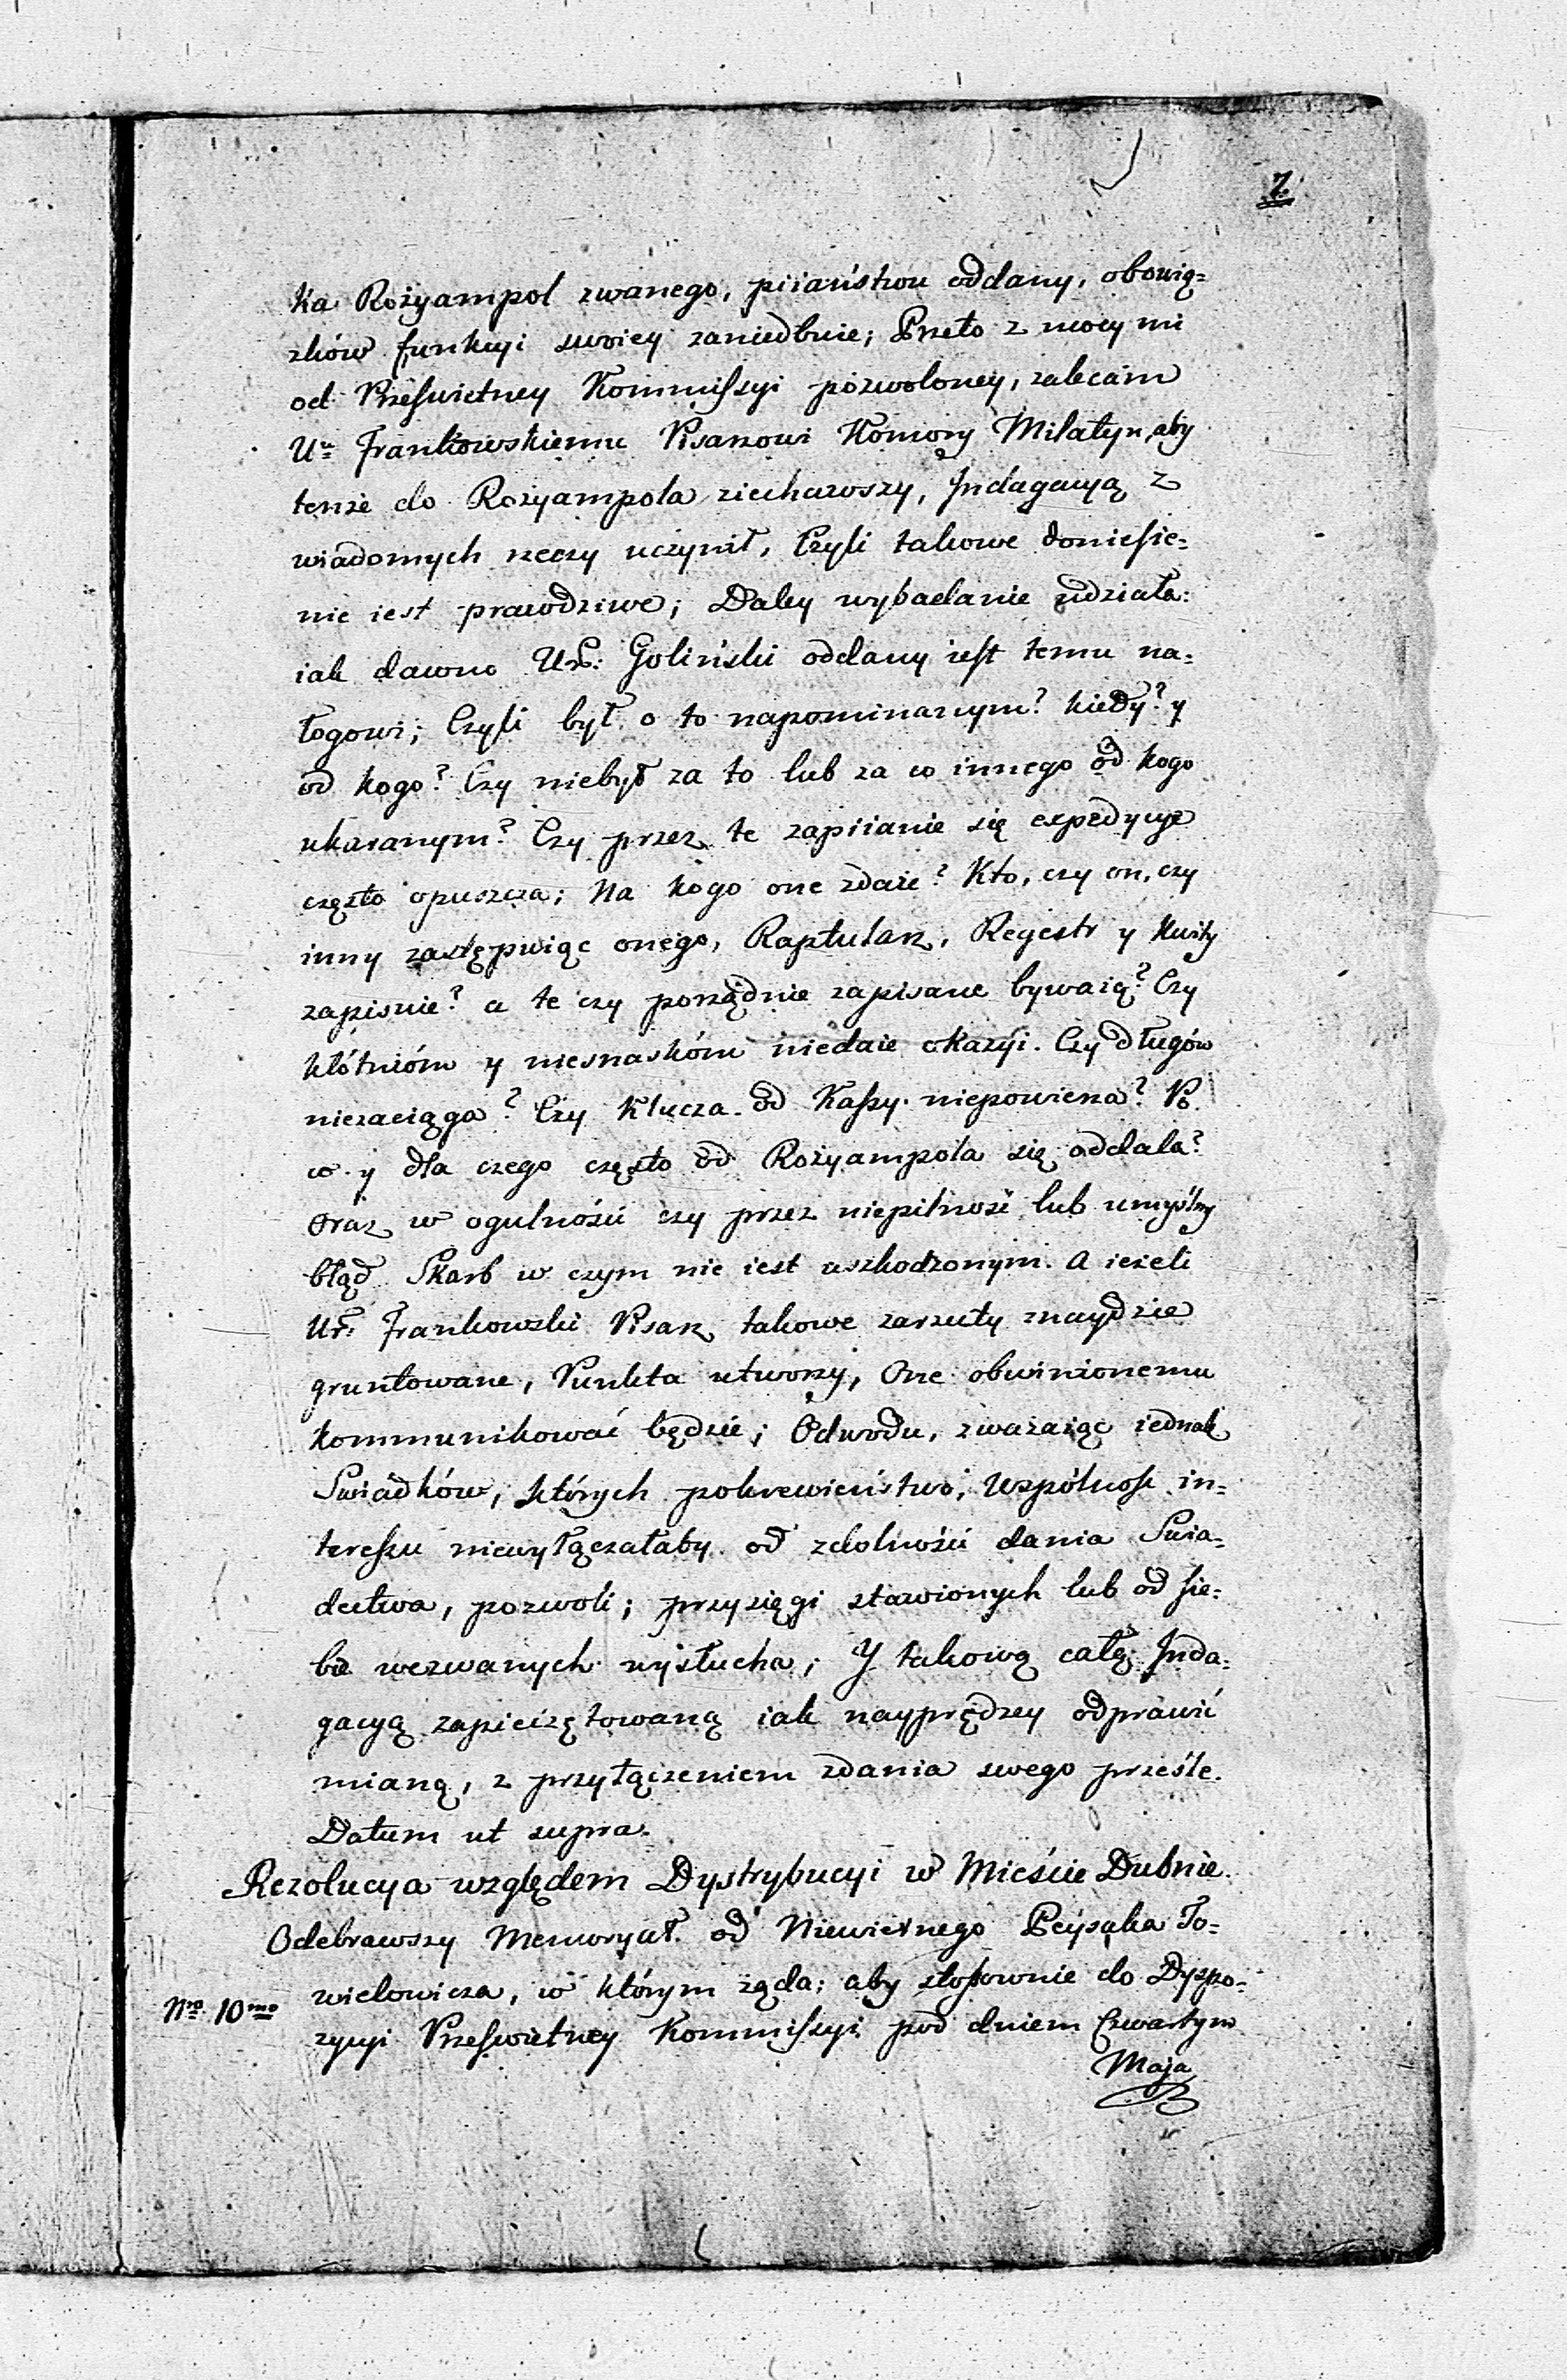 7.
ka Rożyampol zwanego, piiaństwu oddany, obowią=
zków funkcyi swoiey zaniedbuie; Przeto z mocy mi
od Prześwietney Kommissyi pozwoloney, zalecam
Ur Frankowskiemu Pisarzowi Komory Milatyn, aby
tenże do Rożyampola ziechawszy, Indagacyą z
wiadomych rzeczy uczynił, Czyli takowe doniesie=
nie iest prawdziwe; Daley wybadanie udziała:
iak dawno Ur: Goliński oddany iest temu na=
łogowi; Czyli był o to napominanym? kiedy? y
od kogo? Czy niebył za to lub za co innego od kogo
ukaranym? Czy przez te zapiianie się expedycye
często opuszcza; Na kogo one zdaie? Kto, czy on, czy
inny zastępuiąc onego, Raptularz, Regestr y kwity
zapisuie? a te czy porządnie zapisane bywaią? Czy
kłótnióm y niesnaskóm niedaie okazyi. Czy długów
niezaciąga? Czy klucza od Kassy niepowierza? Po
co y dla czego często od Rożyampola się oddala?
oraz w ogulności czy przez niepilność lub umyślny
błąd Skarb w czym nie iest uszkodzonym. A ieżeli
Ur: Frankowski Pisarz takowe zarzuty znaydzie
gruntowane, Punkta utworzy, One obwinionemu
kommunikować będzie; Odwodu, zważaiąc iednak
Swiadków, których pokrewieństwo, wspólność in=
teressu niewyłączałaby od zdolności dania Swia=
dectwa, pozwoli; przysięgi stawionych lub od sie=
bie wezwanych wysłucha; Y takową całą Inda=
gacyą zapieczętowaną iak nayprędzey odprawić
mianą, z przyłączeniem zdania swego prześle.
Datum ut supra.
Rezolucya względem Dystrybucyi w Mieście Dubnie.
Odebrawszy Memoryał od Niewiernego Peysaka Jo=
wielowicza, w którym żąda: aby stosownie do Dyspo=
Nro 10mo
zycyi Prześwietney Kommissyi pod dniem Czwartym
Maja